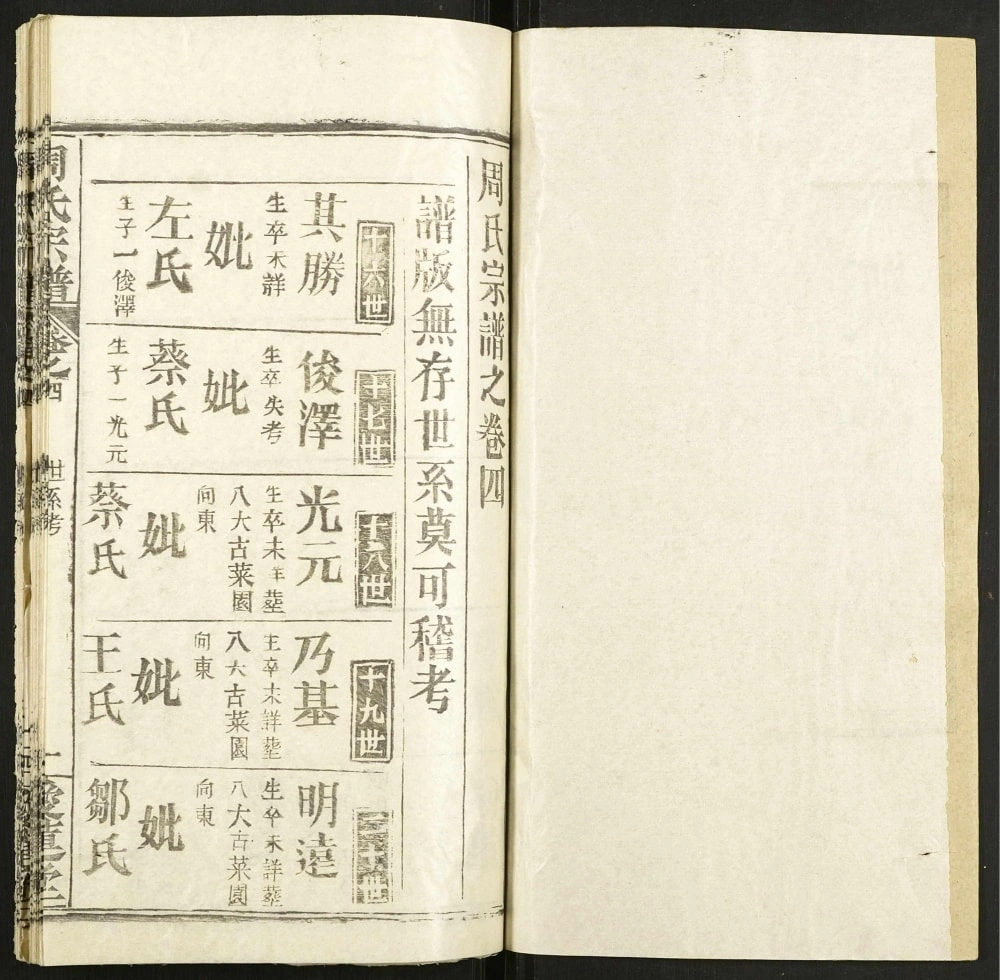 周氏宗譜之卷四
譜版無存世系莫可稽考
十六世
其勝
生卒未詳
妣
左氏
生子一俊澤
十七世
俊澤
生卒失考
妣
蔡氏
生子一光元
十八世
光元
生卒未詳塟
八大古菜園
向東
妣
蔡氏
十九世
乃基
生卒未詳塟
八大古菜園
向東
妣
王氏
二十世
明遠
生卒未詳塟
八大古菜園
向東
妣
鄒氏
周氏宗譜
卷之四
世系考
一
愛蓮堂